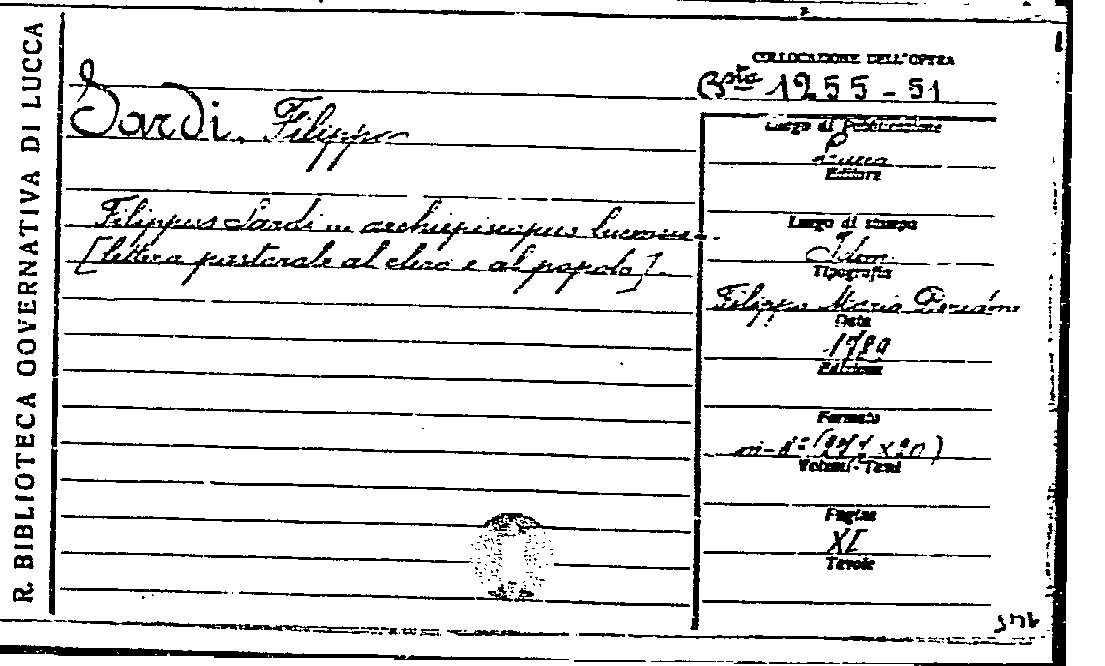 R. BIBLIOTECA GOVERNATIVA DI LUCCA
Sardi, Filippo
Filippus Sardi ... archiepiscopus lucanus...
[lettera pastorale al clero e al popolo].
COLLOCAZIONE DELL'OPERA
Bsta 1255-51
Luogo di Pubblicazione
Lucca
Editore
Luogo di stampa
Idem
Tipografia
Filippo Maria
Data
1789
Edizione
Formato
in-8°
Volumi-Tomi
Pagine
XI
Tavole